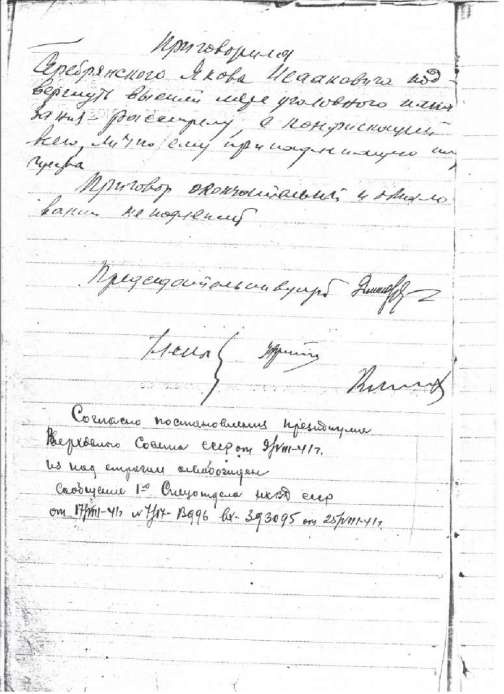 Приговорила
Серебрянского Якова Исааковича под
вергнуть высшей мере уголовного нака
зания расстрелу с конфискацией
всего, лично ему принадлежащего иму
щества
Приговор окончательный и обжало
ванию не подлежит
Председательствующий
Члены
Согласно постановления Президиума
Верховного Совета СССР от 9/VIII-41г.
из под стражи освобожден
сообщение 1го Спецотдела НКВД СССР
от 17/VIII-41г № 1/17- вх- 393095 от 25/VIII-41г.